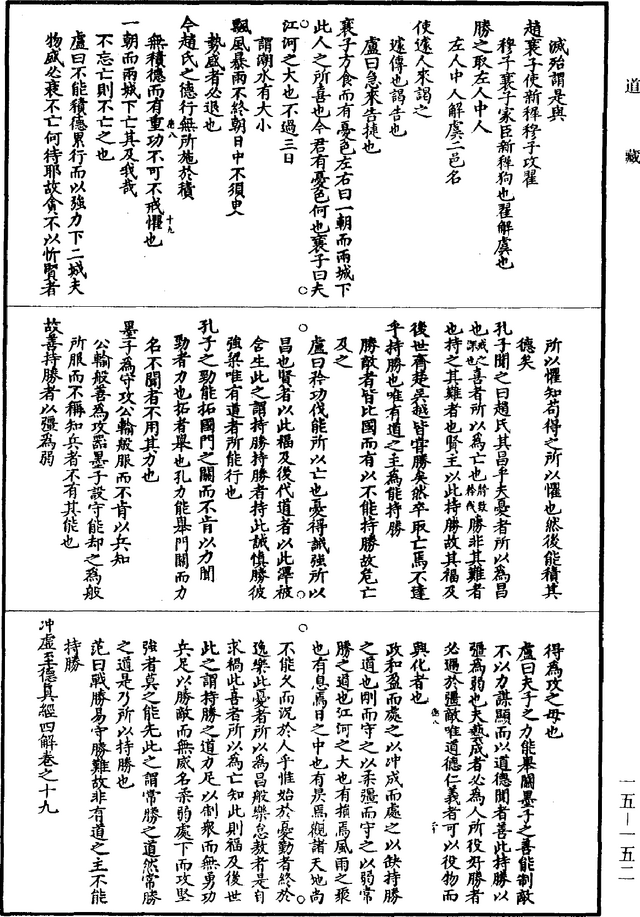 道藏
滅殆謂是與
趙襄子使新稚穆子攻翟
穆子襄子家臣新稚狗也翟鮮虞也
勝之取左人中人
左人中人鮮虞二邑名
使遽人來謁之
遽傳也謁告也
盧曰急來告捷也
襄子方食而有憂色左右曰一朝而兩城下
此人之所喜也今君有憂色何也襄子曰夫
江河之大也不過三日
謂潮水有大小
飄風暴雨不終朝日中不須臾
勢盛者必退也
今趙氏之德行無所施於積
無積德而有重功不可不戒懼也
一朝而兩城下亡其及我哉
不忘亡則不亡之也
盧曰不能積德累行而以強力下二城夫
物盛必衰不亡何待耶故貪不以忻賢者
所以懼知苟得之所以懼也然後能積其
德矣
孔子聞之曰趙氏其昌乎夫憂者所以為昌
也喜者所以為亡也勝非其難者
也持之其難者也賢主以此持勝故其福及
後世齊楚吳越皆嘗勝矣然卒取亡焉不達
乎持勝也唯有道之主為能持勝
勝敵者皆比國而有以不能持勝故危亡
及之
盧曰矜功伐能所以亡也憂得誡強所以
昌也賢者以此福及後代道者以此澤被
含生此之謂持勝持勝者持此誠慎勝彼
強梁唯有道者所能行也
孔子之勁能拓國門之關而不肯以力聞
勁者力也拓者舉也孔力能舉門關而力
名不聞者不用其力也
墨子為守攻公輸般服而不肯以兵知
公輸般善為攻器墨子設守能却之為般
所服而不稱知兵者不有其能也
故善持勝者以彊為弱
得為攻之母也
盧曰夫子之力能舉關墨子之善能制敵
不以力謀顯而以道德聞者善此持勝以
彊為弱也夫藝成者必為人所役好勝者
必遇於彊敵唯道德仁義者可以役物而
興化者也
政和盈而處之以冲成而處之以缺持勝
之道也剛而守之以柔彊而守之以弱常
勝之道也江河之大也有損焉風雨之聚
也有息焉日之中也有昃焉觀諸天地尚
不能久而況於人乎惟始於憂勤者終於
逸樂此憂者所以為昌般樂怠敖者是自
求禍此喜者所以為亡知此則福及後世
此之謂持勝之道力足以制衆而無勇功
兵足以勝敵而無威名柔弱處下而攻堅
強者莫之能先此之謂常勝之道然常勝
之道是乃所以持勝也
范曰戰勝易守勝難故非有道之主不能
持勝
冲虛至德真經四解卷之十九
一五－一五二